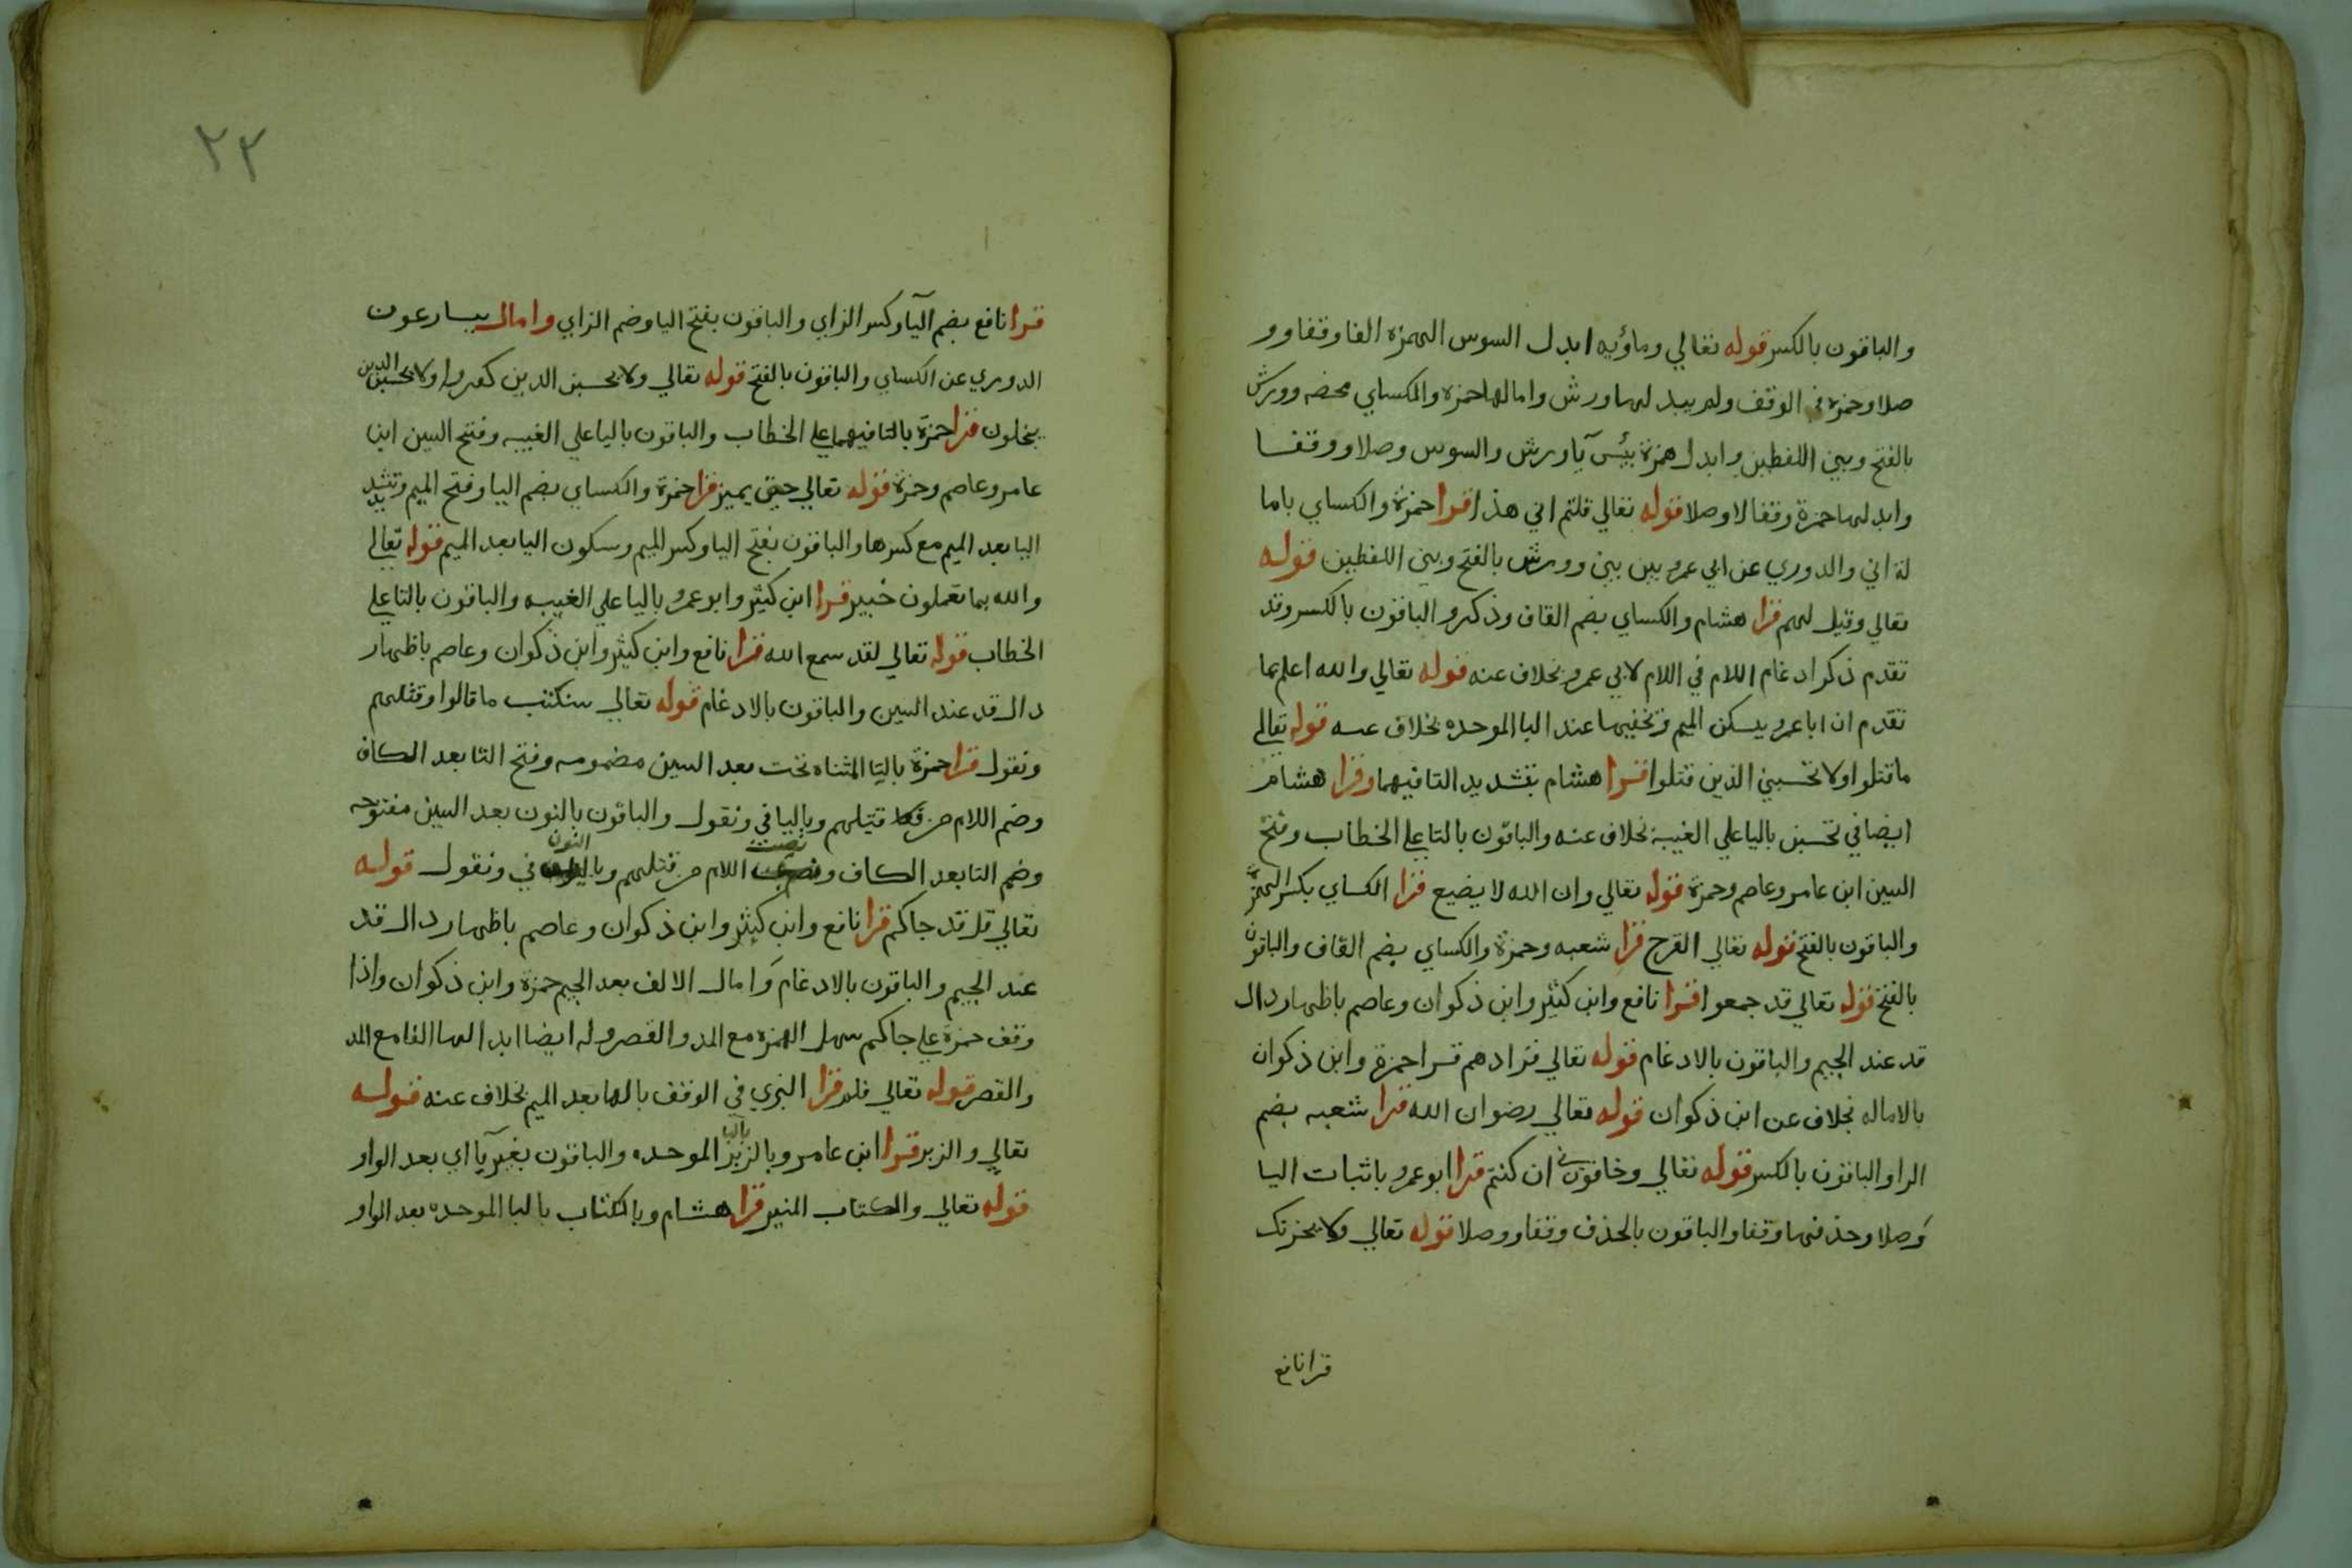 والباقون بالكسر قوله تعالي وماؤيه ابدل السوس الهمزه الفا وقفا وو
صلا وحمزه في الوقف ولم يبدلها ورش وامالها حمزه والكساي محضه وورش
بالفتح وبين اللفظين وابدل همزة بئس يآ ورش والسوس وصلا ووقفا
وابدلها حمزة وقفا لا وصلا قوله تعالي قلتم اني هذا قرا حمزة والكساي باما
لة اني والدوري عن ابي عمرو بين بين وورش بالفتح وبين اللفظين قوله
تعالي وقيل لهم قرا هشام والكساي بضم القاف وذكرو الباقون بالكسر وقد
تقدم ذكر ادغام اللام في اللام لابي عمرو بخلاف عنه قوله تعالي والله اعلم بما
تقدم ان ابا عمرو يسكن الميم وتخفيها عند البا الموحده بخلاف عنه قوله تعالي
ما قتلوا ولا تحسبن الذين قتلوا قرا هشام بتشديد التا فيهما وقرا هشام
ايضا في تحسبن باليا علي الغيبة بخلاف عنه والباقون بالتا علي الخطاب وفتح
السين ابن عامر وعاصم وحمزة قوله تعالي وان الله لا يضيع قرا الكساي بكسر الهمزة
والباقون بالفتح قوله تعالي القرح قرا شعبه وحمزة والكساي بضم القاف والباقون
بالفتح قوله تعالي قد جمعوا قرا نافع وابن كثير وابن ذكوان وعاصم باظهار دال
قد عند الجيم والباقون بالادغام قوله تعالي فزادهم قرا حمزة وابن ذكوان
بالاماله بخلاف عن ابن ذكوان قوله تعالي رضوان الله قرا شعبه بضم
الرا والباقون بالكسر قوله تعالي وخافون ان كنتم قرا ابو عمرو باثبات اليا
وصلا وحذفها وقفا والباقون بالحذف وقفا ووصلا قوله تعالي ولا يحزنك
قرا نافع
٢٢
قرا نافع بضم اليآ وكسر الزاي والباقون بفتح اليا وضم الزاي وامال يسارعون
الدوري عن الكساي والباقون بالفتح قوله تعالي ولا يحسبن الذين كفروا ولا يحسبن الذين
يبخلون قرا حمزة بالتا فيهما علي الخطاب والباقون باليا علي الغيبه وفتح السين ابن
عامر وعاصم وحمزة قوله تعالي حتي يميز قرا حمزة والكساي بضم اليا وفتح الميم وتشديد
اليا بعد الميم مع كسرها والباقون بفتح اليا وكسر الميم وسكون اليا بعد الميم قوله تعالي
والله بما تعملون خبير قرا ابن كثير وابو عمرو باليا علي الغيبه والباقون بالتا علي
الخطاب قوله تعالي لقد سمع الله قرا نافع وابن كثير وابن ذكوان وعاصم باظهار
دال قد عند السين والباقون بالادغام قوله تعالي سنكتب ما قالوا وقتلهم
ونقول قرا حمزة باليا المثناه تحت بعد السين مضمومه وفتح التا بعد الكاف
وضم اللام من قتيلهم وباليا في ونقول والباقون بالنون بعد السين مفتوحه
وضم التا بعد الكاف ونصبت اللام من قتلهم وبالنون في ونقول قوله
تعالي قل قد جاكم قرا نافع وابن كثير وابن ذكوان وعاصم باظهار دال قد
عند الجيم والباقون بالادغام وامال الالف بعد الجيم حمزة وابن ذكوان واذا
وقف حمزة علي جاكم سهل الهمزه مع المد والقصر وله ايضا ابدالها الفا مع المد
والقصر قوله تعالي فلم قرا البزي في الوقف بالها بعد الميم بخلاف عنه قوله
تعالي والزبر قرا ابن عامر وبالزبر بالبا الموحده والباقون بغير يآ اي بعد الواو
قوله تعالي والكتاب المنير قرا هشام وبالكتاب بالبا الموحده بعد الواو